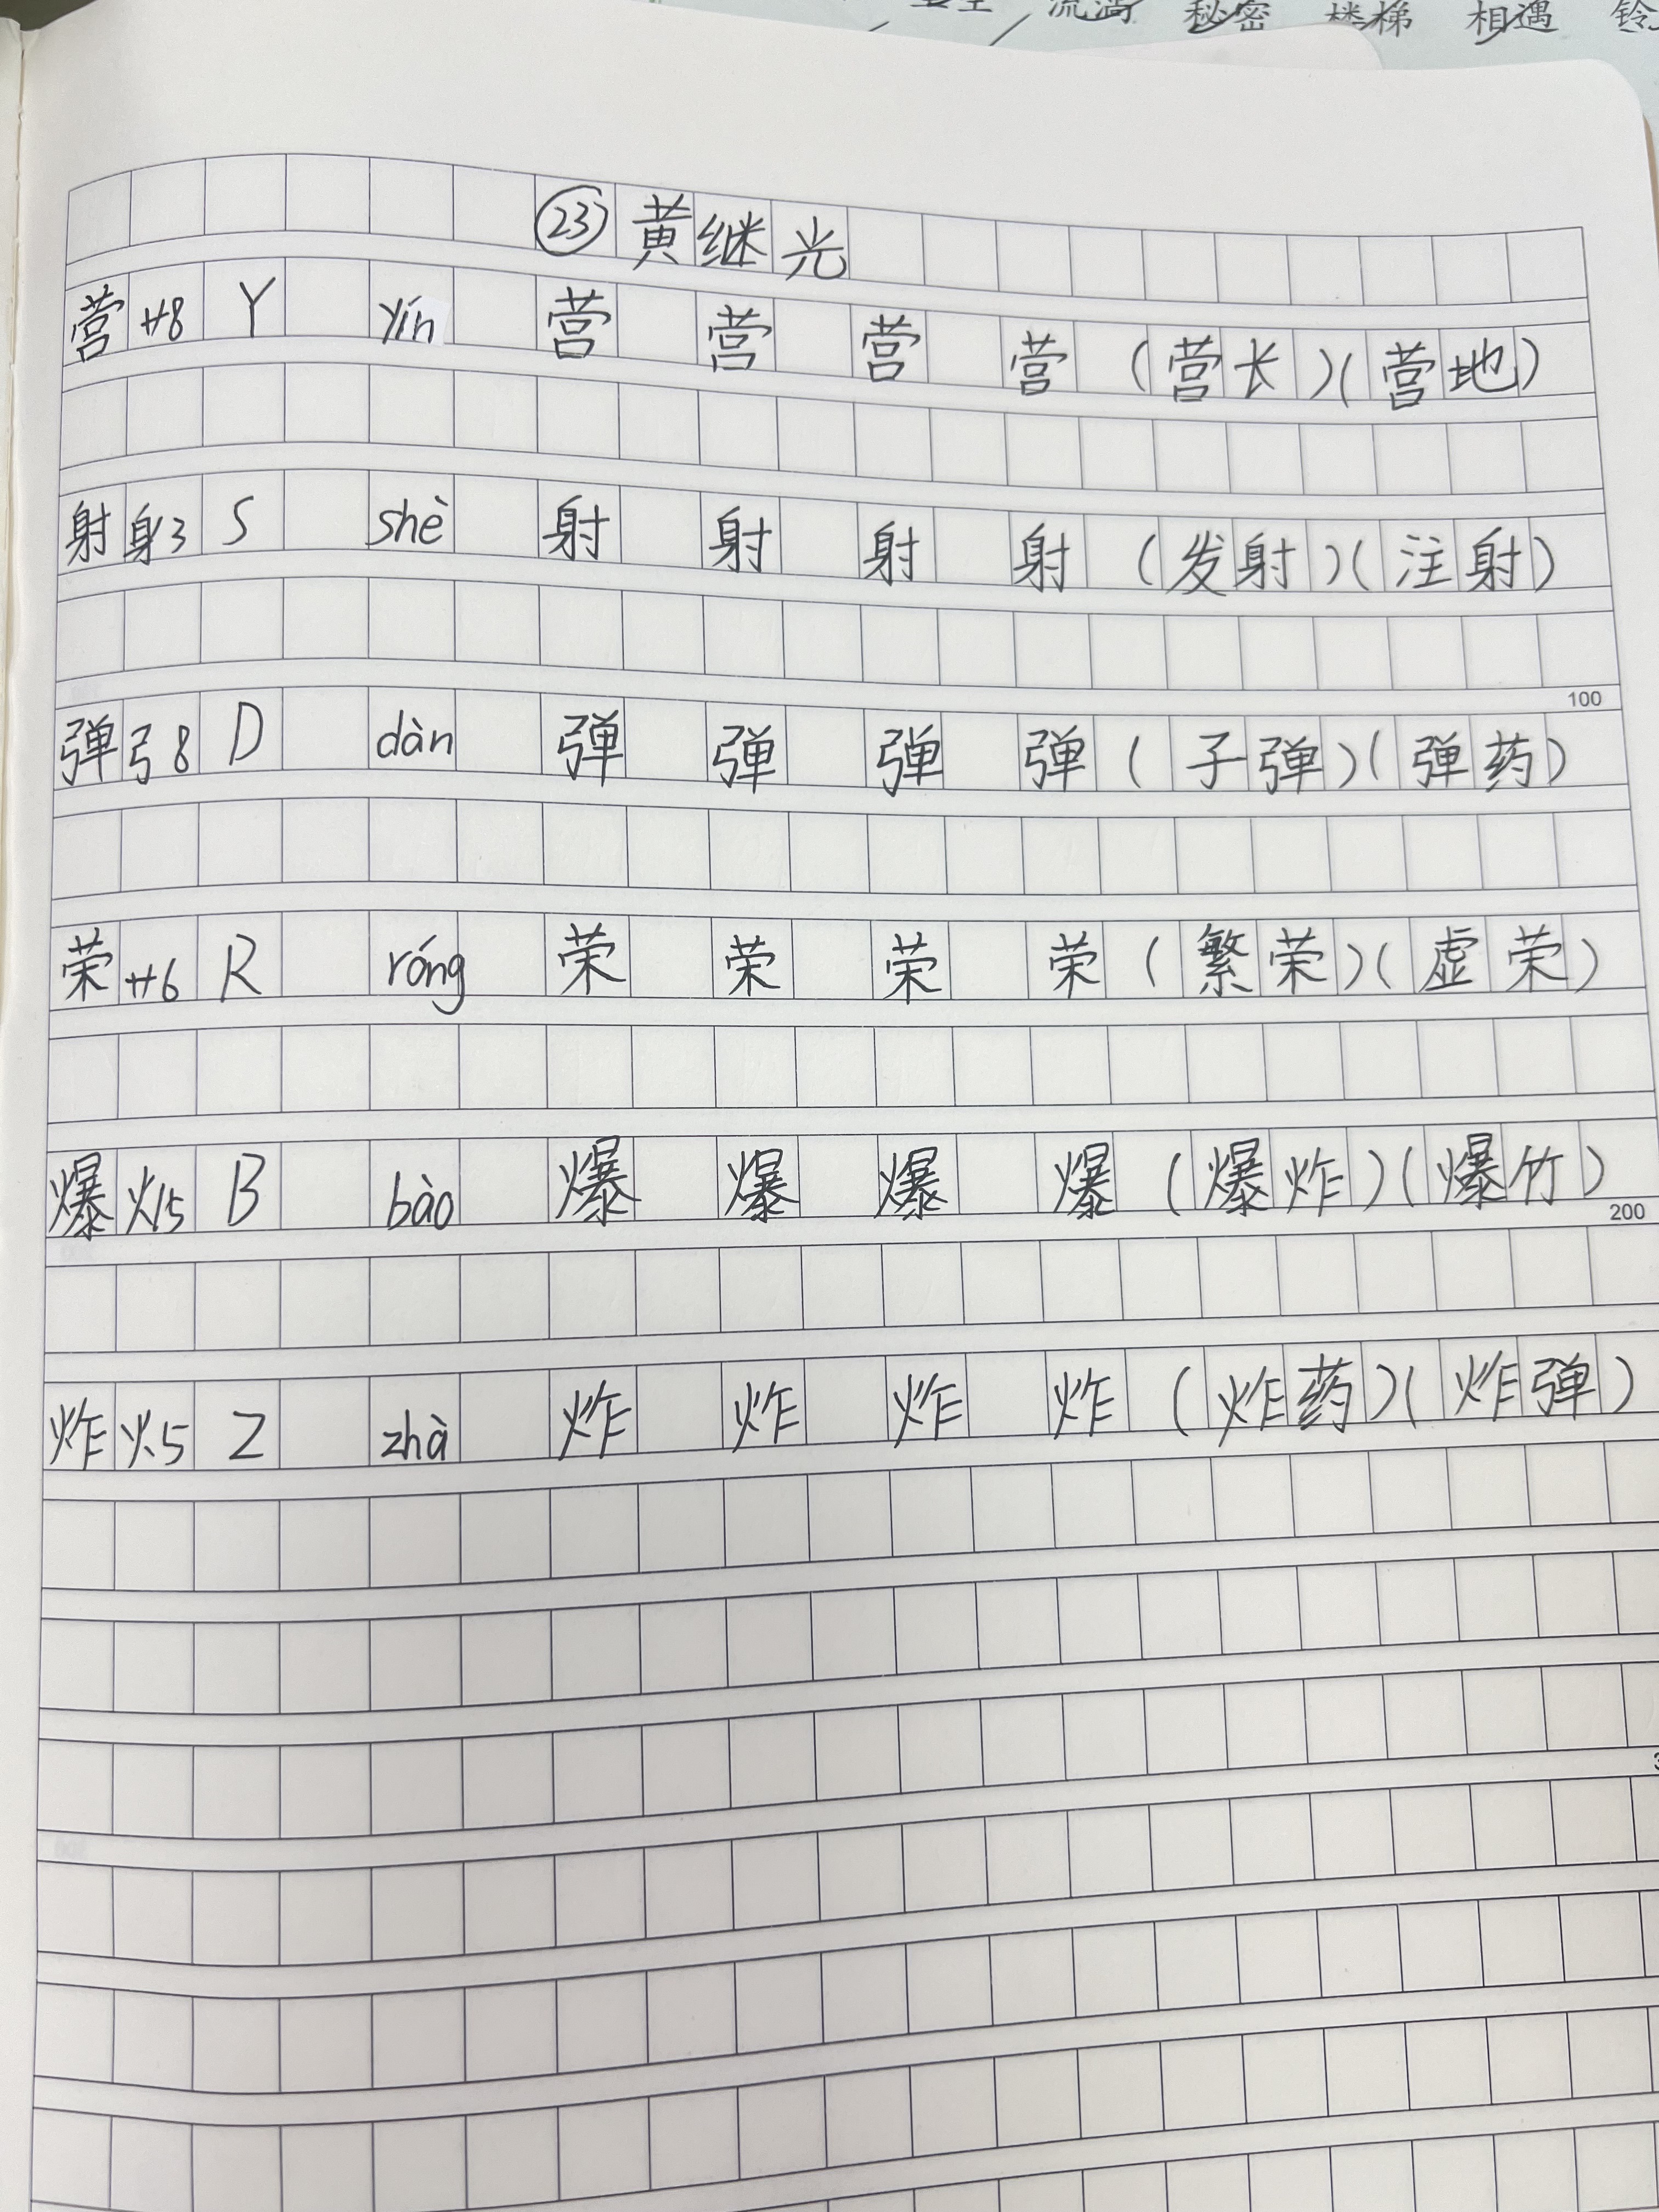 流淌 秘密 楼梯 相遇 铃
㉓ 黄继光
营 艹8 Y yín 营 营 营 营 (营长)(营地)
射 身3 S shè 射 射 射 射 (发射)(注射)
100
弹 弓8 D dàn 弹 弹 弹 弹 (子弹)(弹药)
荣 艹6 R róng 荣 荣 荣 荣 (繁荣)(虚荣)
爆 火15 B bào 爆 爆 爆 爆 (爆炸)(爆竹)
200
炸 火5 Z zhà 炸 炸 炸 炸 (炸药)(炸弹)